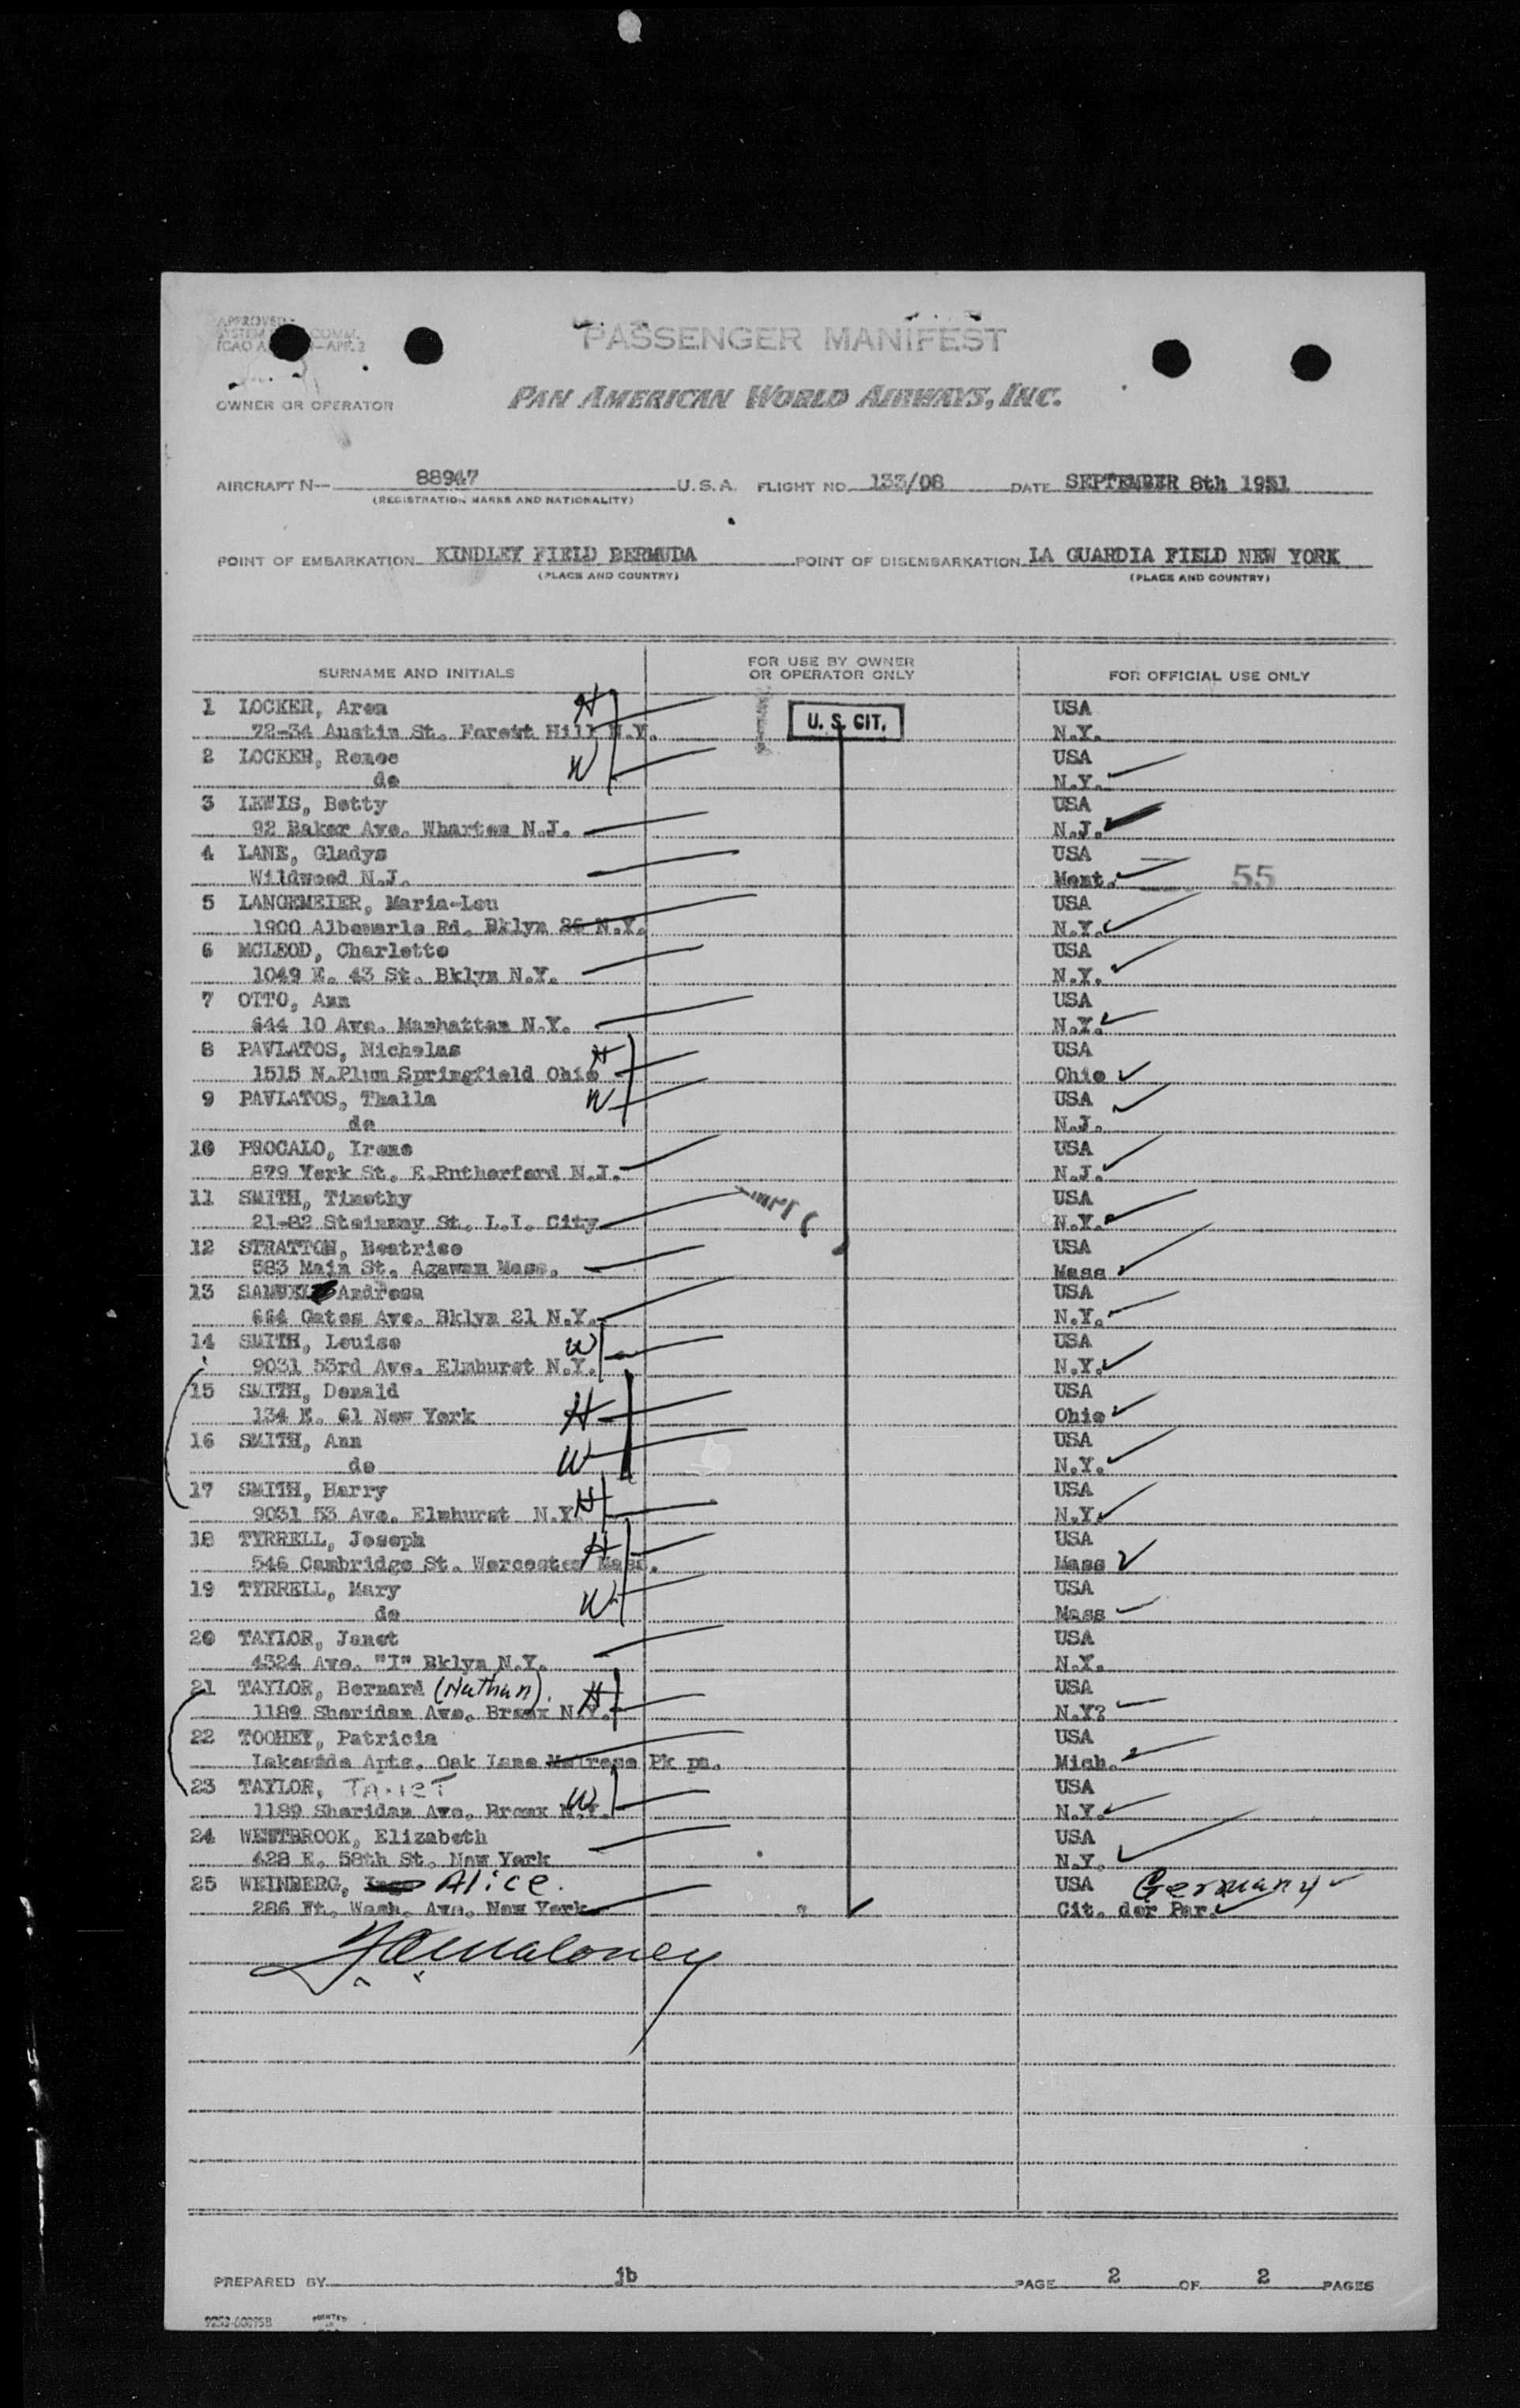 APPROVED
SYSTEM COMM.
ICAO A — APP. 2
PASSENGER MANIFEST
OWNER OR OPERATOR
PAN AMERICAN WORLD AIRWAYS, INC.
AIRCRAFT N— 88947 U.S.A. FLIGHT NO. 133/08 DATE SEPTEMBER 8th 1951
(REGISTRATION MARKS AND NATIONALITY)
POINT OF EMBARKATION KINDLEY FIELD BERMUDA POINT OF DISEMBARKATION LA GUARDIA FIELD NEW YORK
(PLACE AND COUNTRY) (PLACE AND COUNTRY)
SURNAME AND INITIALS FOR USE BY OWNER OR OPERATOR ONLY FOR OFFICIAL USE ONLY
1 LOCKER, Aron H USA
72-34 Austin St. Forest Hill N.Y. U. S. CIT. N.Y.
2 LOCKER, Renee W USA
do N.Y.
3 LEWIS, Betty USA
92 Baker Ave. Wharton N.J. N.J.
4 LANE, Gladys USA
Wildwood N.J. Mont. 55
5 LANGEMEIER, Maria-Lou USA
1900 Albemarle Rd. Bklyn 26 N.Y. N.Y.
6 MCLEOD, Charlotte USA
1049 E. 43 St. Bklyn N.Y. N.Y.
7 OTTO, Ann USA
644 10 Ave. Manhattan N.Y. N.Y.
8 PAVLATOS, Nicholas H USA
1515 N.Plum Springfield Ohio Ohio
9 PAVLATOS, Thalla W USA
do N.J.
10 PROCALO, Irene USA
879 York St. E.Rutherford N.J. N.J.
11 SMITH, Timothy USA
21-82 Steinway St. L.I. City N.Y.
12 STRATTON, Beatrice USA
583 Main St. Agawam Mass. Mass
13 SAMUEL Andresa USA
664 Gates Ave. Bklyn 21 N.Y. N.Y.
14 SMITH, Louise W USA
9031 53rd Ave. Elmhurst N.Y. N.Y.
15 SMITH, Donald USA
134 E. 61 New York H Ohio
16 SMITH, Ann USA
do W N.Y.
17 SMITH, Harry H USA
9031 53 Ave. Elmhurst N.Y. N.Y.
18 TYRRELL, Joseph H USA
546 Cambridge St. Worcester Mass. Mass
19 TYRRELL, Mary W USA
do Mass
20 TAYLOR, Janet USA
4324 Ave. "I" Bklyn N.Y. N.Y.
21 TAYLOR, Bernard (Nathan). H USA
1189 Sheridan Ave. Bronx N.Y. N.Y?
22 TOOHEY, Patricia USA
Lakeside Apts. Oak Lane Melrose Pk pa. Mich.
23 TAYLOR, JANET W USA
1189 Sheridan Ave. Bronx N.Y. N.Y.
24 WESTBROOK, Elizabeth USA
428 E. 58th St. New York N.Y.
25 WEINBERG, Alice. USA Germany
286 Ft. Wash. Ave. New York Cit. der Par.
PREPARED BY jb PAGE 2 OF 2 PAGES
PRINTED